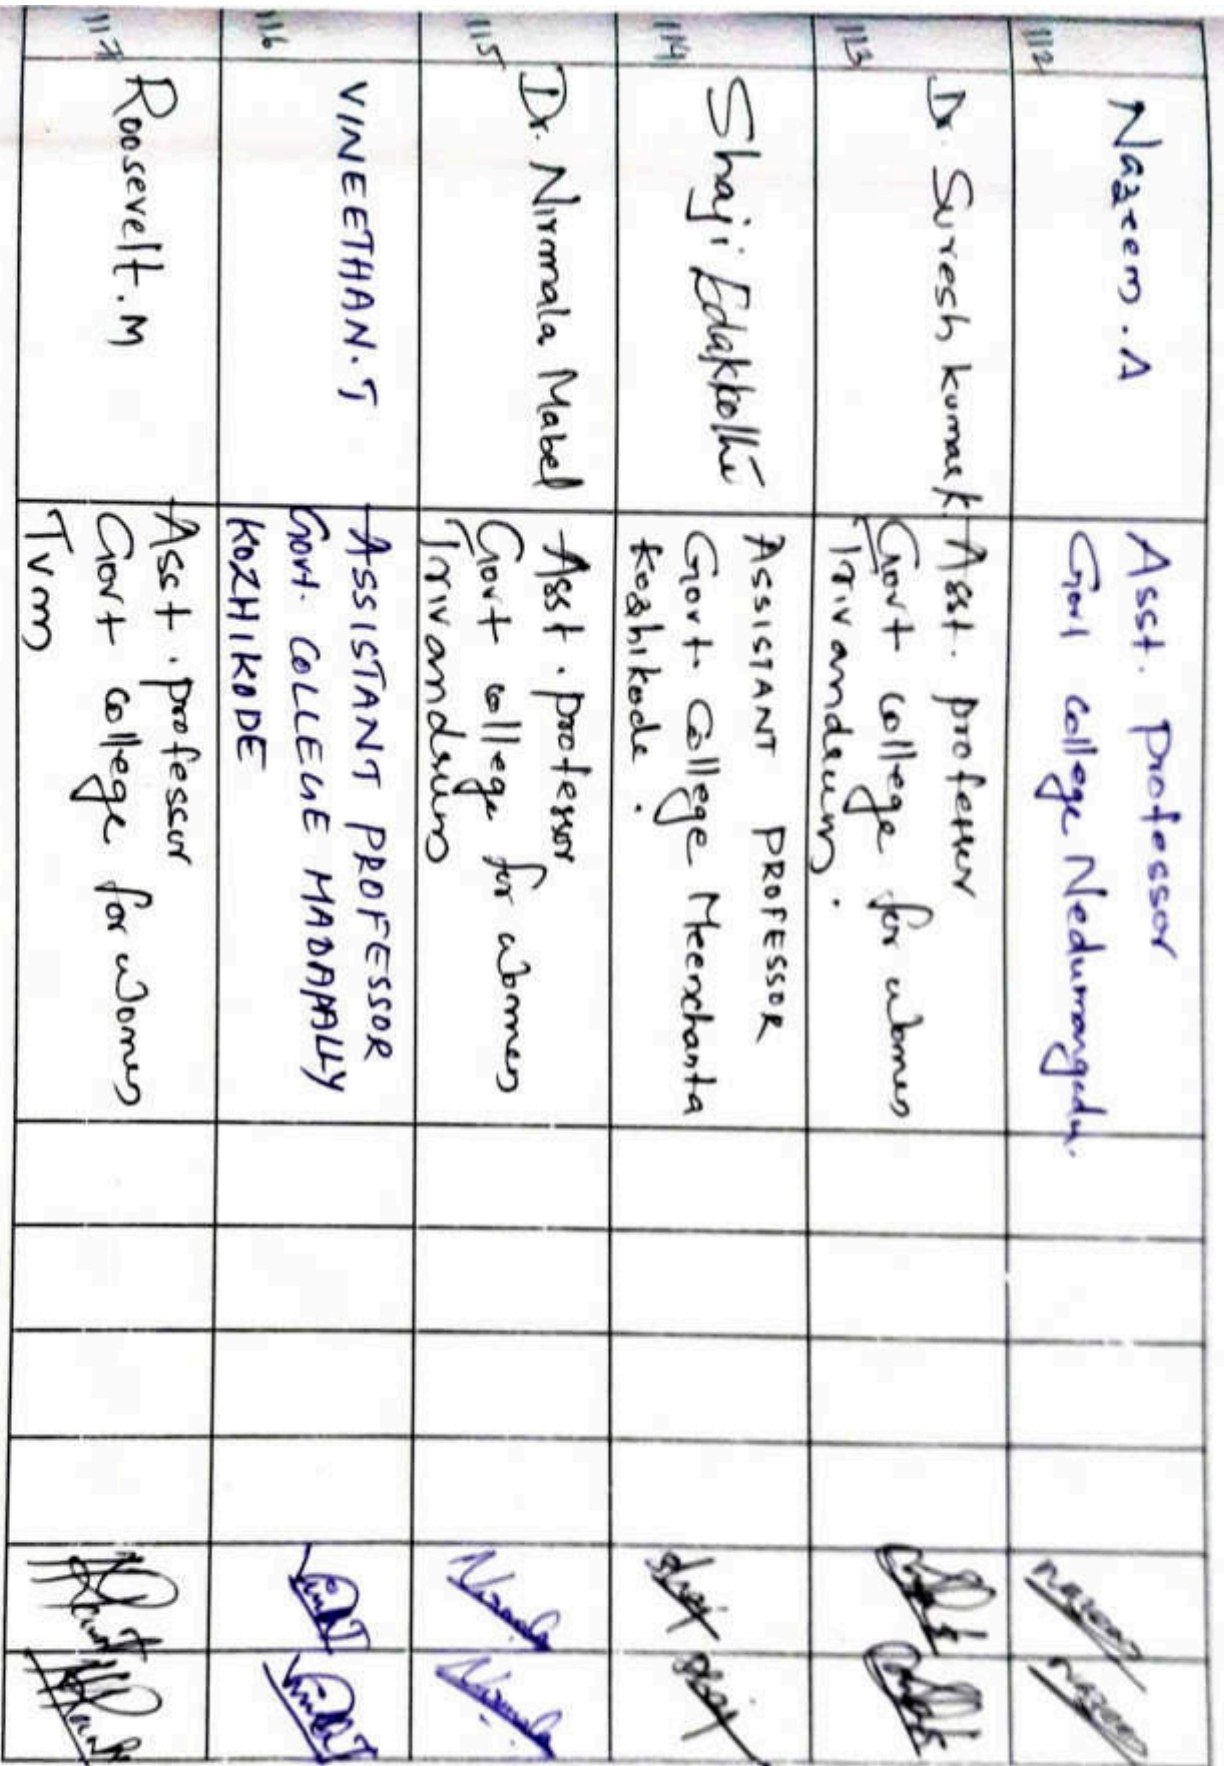 112
Nazeem. A
Asst. Professor
Govt college Nedumangadu.
113
Dr. Suresh kumar k
Asst. professor
Govt college for women
Trivandrum.
114
Shaji Edakkothi
ASSISTANT PROFESSOR
Govt- College Meenchanta
Kozhikode.
115
Dr. Nirmala Mabel
Asst. professor
Govt college for women
Trivandrum
116
VINEETHAN.T
ASSISTANT PROFESSOR
Govt. COLLEGE MADAPALLY
KOZHIKODE
117
Roosevelt. M
Asst. professor
Govt college for women
Tvm
nazeem nazeem
shaji shaji
Nirmala Nirmala